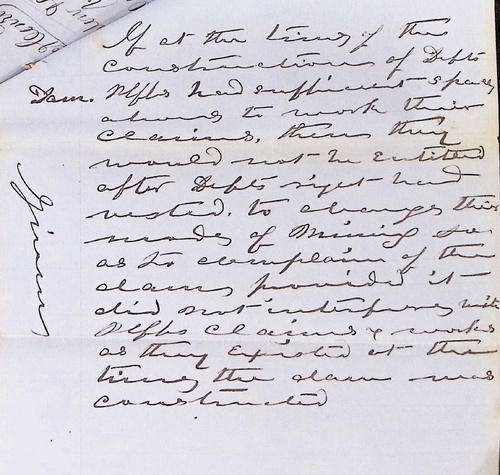 If at the time of the
construction of Defts
Dam. Plffs had sufficient space
above to work their
Claims, then they
would not be entitled
after Defts right had
vested, to change their
mode of Mining so
as to complain of the
dam, provided it
did not interfere with
Plffs Claims & works
as they existed at the
time the dam was
constructed
Given